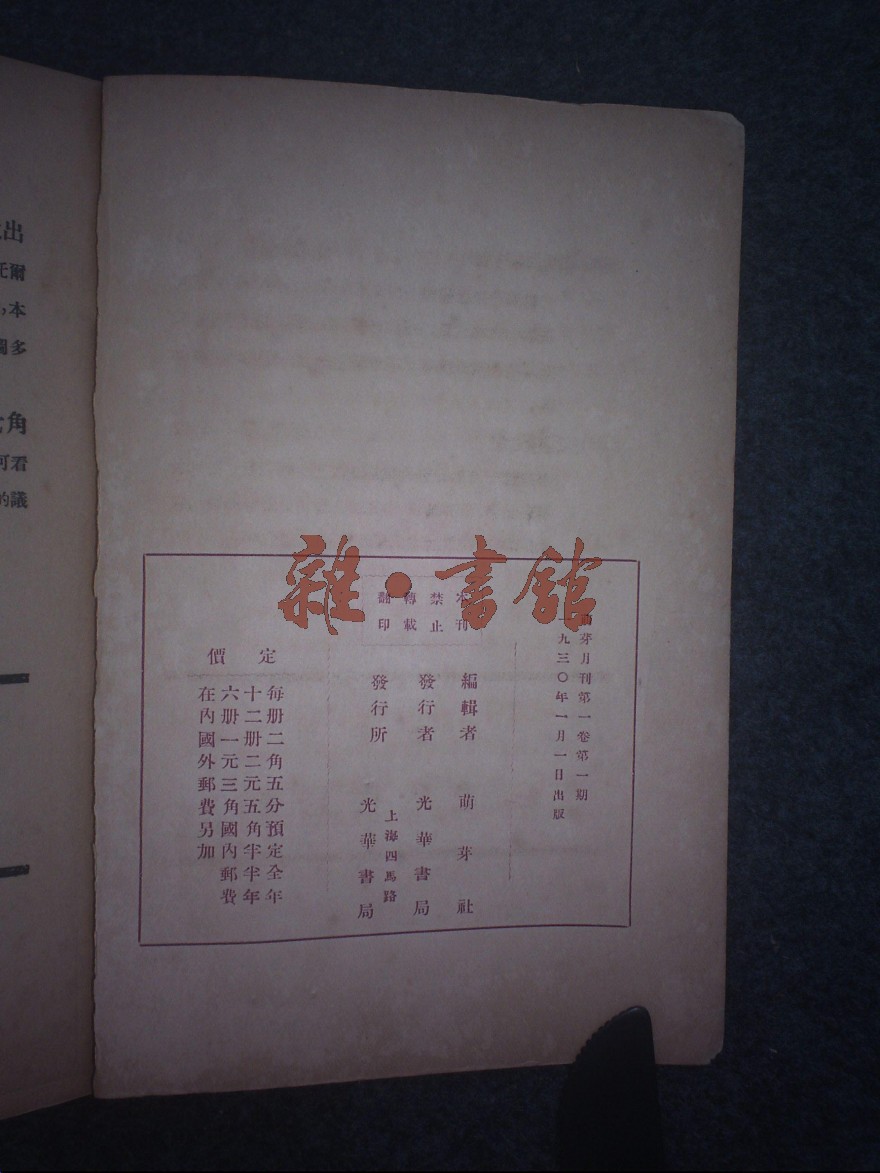 萌芽月刊第一卷第一期
一九三〇年一月一日出版
本刊
禁止
轉載
翻印
編輯者 萌芽社
發行者 光華書局
發行所 上海四馬路 光華書局
定價
每册二角五分預定全年
十二册二元五角半半年
六册一元三角國內郵費
在內國外郵費另加
雜·書館
出
爾
,本
多
角
可看
的議